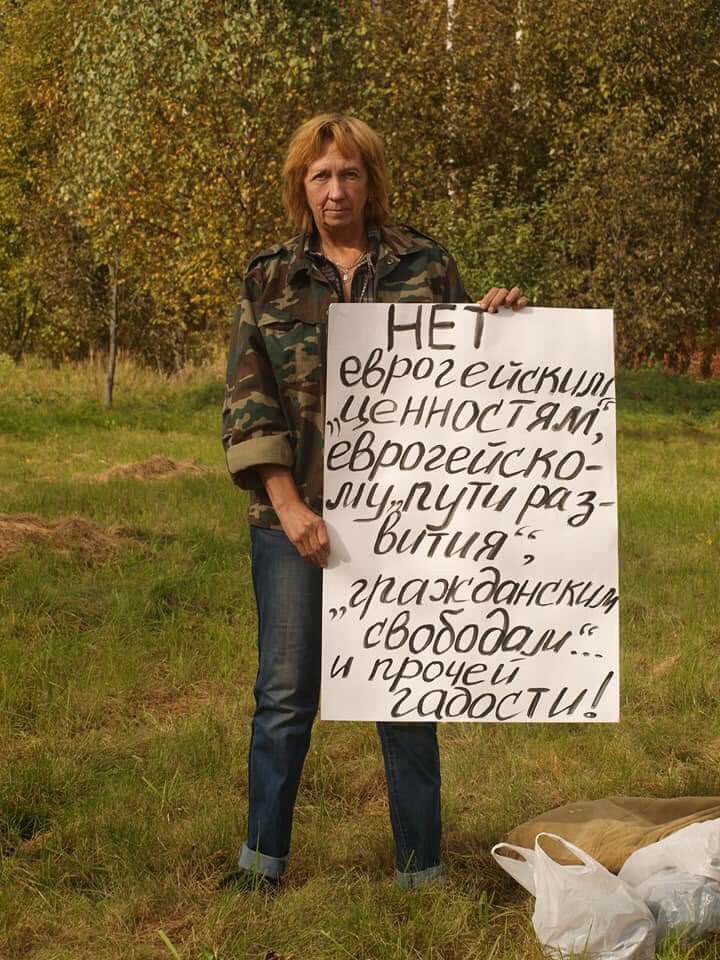 НЕТ
еврогейским
„ценностям“,
еврогейско-
му „пути раз-
вития“,
„гражданским
свободам“...
и прочей
гадости!